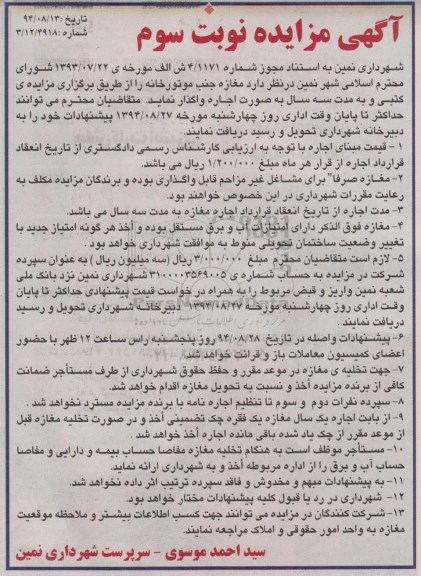 آگهی مزایده نوبت سوم
تاریخ: ۹۴/۰۸/۱۳
شماره: ۳/۱۲/۴۹۱۸
شهرداری نمین به استناد مجوز شماره ۴/۱۱۷۱ ش الف مورخه ی ۱۳۹۳/۰۷/۲۲ شورای
محترم اسلامی شهر نمین درنظر دارد مغازه جنب موتورخانه را از طریق برگزاری مزایده ی
کتبی و به مدت سه سال به صورت اجاره واگذار نماید. متقاضیان محترم می توانند
حداکثر تا پایان وقت اداری روز چهارشنبه مورخه ۱۳۹۴/۰۸/۲۷ پیشنهادات خود را به
دبیرخانه شهرداری تحویل و رسید دریافت نمایند.
۱ - قیمت مبنای اجاره با توجه به ارزیابی کارشناس رسمی دادگستری از تاریخ انعقاد
قرارداد اجاره از قرار هر ماه مبلغ ۱/۲۰۰/۰۰۰ ریال می باشد.
۲- مغازه صرفا" برای مشاغل غیر مزاحم قابل واگذاری بوده و برندگان مزایده مکلف به
رعایت مقررات شهرداری در این خصوص خواهند بود.
۳- مدت اجاره از تاریخ انعقاد قرارداد اجاره مغازه به مدت سه سال می باشد.
۴- مغازه فوق الذکر دارای امتیازات آب و برق مستقل بوده و اخذ هر گونه امتیاز جدید با
تغییر وضعیت ساختمان تحویلی منوط به موافقت شهرداری خواهد بود.
۵- لازم است متقاضیان محترم مبلغ ۳/۰۰۰/۰۰۰ ریال (سه میلیون ریال) به عنوان سپرده
شرکت در مزایده به حساب شماره ی ۳۱۰۰۰۰۳۵۶۹۰۰۵ شهرداری نمین نزد بانک ملی
شعبه نمین واریز و قبض مربوط را به همراه در خواست قیمت پیشنهادی حداکثر تا پایان
وقت اداری روز چهارشنبه مورخه ۱۳۹۴/۰۸/۲۷ دبیرخانه شهرداری تحویل و رسید
دریافت نمایند.
۶- پیشنهادات واصله در تاریخ ۹۴/۰۸/۲۸ روز پنجشنبه راس ساعت ۱۲ ظهر با حضور
اعضای کمیسیون معاملات باز و قرائت خواهد شد.
۷- جهت تخلیه ی مغازه در موعد مقرر و حفظ حقوق شهرداری از طرف مستأجر ضمانت
کافی از برنده مزایده أخذ و نسبت به تحویل مغازه اقدام خواهد شد.
۸- سپرده نفرات دوم و سوم تا تنظیم اجاره نامه با برنده مزایده مسترد نخواهد شد.
۹- از بابت اجاره یک سال مغازه یک فقره چک تضمینی أخذ و در صورت تخلیه مغازه قبل
از موعد مقرر از چک یاد شده باقی مانده اجاره أخذ خواهد شد.
۱۰- مستأجر موظف است به هنگام تخلیه مغازه مفاصا حساب بیمه و دارایی و مفاصا
حساب آب و برق را از اداره مربوطه أخذ و به شهرداری ارائه نماید.
۱۱- به پیشنهادات مبهم و مخدوش و فاقد سپرده ترتیب اثر داده نخواهد شد.
۱۲- شهرداری در رد یا قبول کلیه پیشنهادات مختار خواهد بود.
۱۳- شرکت کنندگان در مزایده می توانند جهت کسب اطلاعات بیشتر و ملاحظه موقعیت
مغازه به واحد امور حقوقی و املاک مراجعه نمایند.
سید احمد موسوی - سرپرست شهرداری نمین